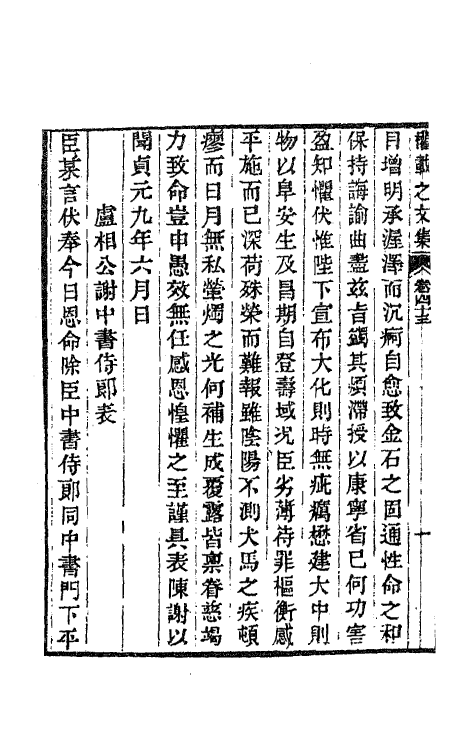 權載之文集 卷四十五 十
目增明承渥澤而沉痾自愈致金石之固通性命之和
保持誨諭曲盡玆吉蠲其煩滯授以康寧省已何功害
盈知懼伏惟陛下宣布大化則時無疵癘懋建大中則
物以阜安生及昌期自登壽域況臣劣薄待罪樞衡感
平施而已深荷殊榮而難報雖陰陽不測犬馬之疾頓
瘳而日月無私螢爝之光何補生成覆露皆稟眷慈竭
力致命豈申愚效無任感恩惶懼之至謹具表陳謝以
聞貞元九年六月日
盧相公謝中書侍郎表
臣某言伏奉今日恩命除臣中書侍郎同中書門下平